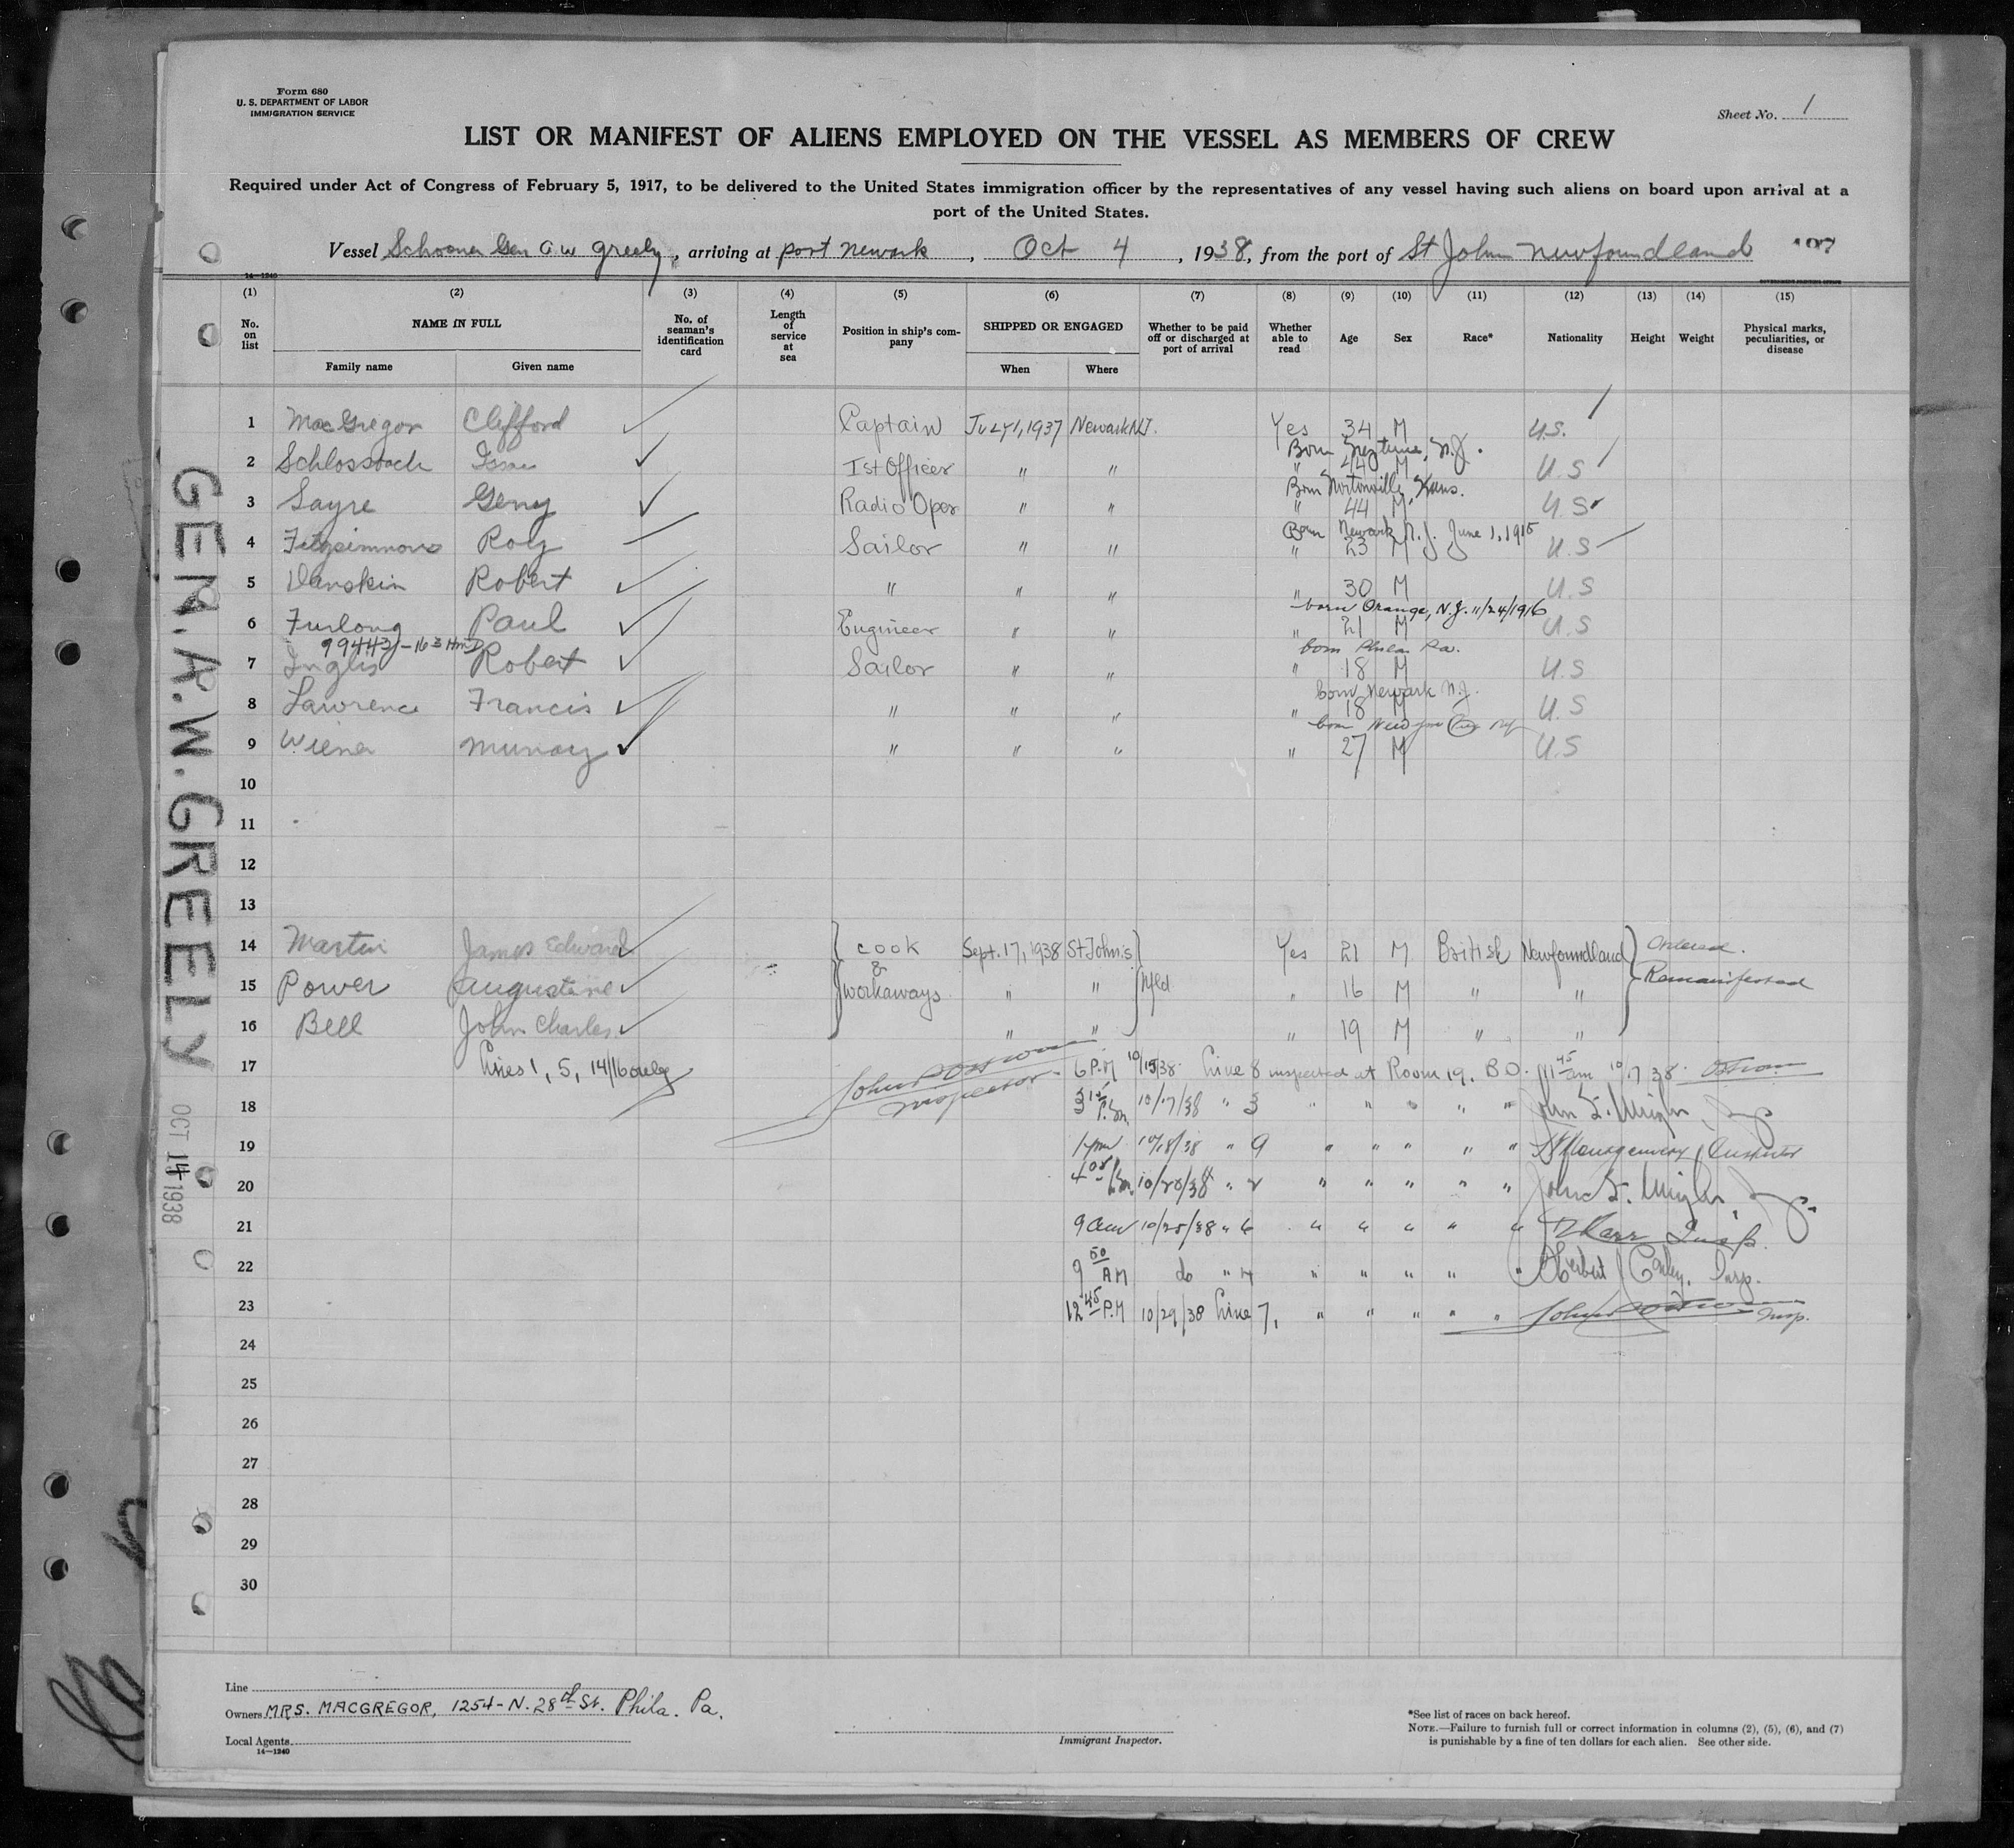 Form 680
U. S. DEPARTMENT OF LABOR
IMMIGRATION SERVICE
Sheet No. 1
LIST OR MANIFEST OF ALIENS EMPLOYED ON THE VESSEL AS MEMBERS OF CREW
Required under Act of Congress of February 5, 1917, to be delivered to the United States immigration officer by the representatives of any vessel having such aliens on board upon arrival at a
port of the United States.
Vessel Schooner Gen A W Greely, arriving at port Newark, Oct 4, 1938, from the port of St John Newfoundland
14—1240
(1) (2) (3) (4) (5) (6) (7) (8) (9) (10) (11) (12) (13) (14) (15)
No. on list NAME IN FULL No. of seaman's identification card Length of service at sea Position in ship's company SHIPPED OR ENGAGED Whether to be paid off or discharged at port of arrival Whether able to read Age Sex Race* Nationality Height Weight Physical marks, peculiarities, or disease
Family name Given name When Where
1 MacGregor Clifford Captain July 1, 1937 Newark N.J. Yes 34 M U.S.
Born Neptune, N.J.
2 Schlossbach Isaac 1st Officer " " " M U.S
Born Nortonville, Kans.
3 Sayre Geny Radio Oper " " " 44 M U.S
Born Newark N.J. June 1, 1915
4 Fitzsimmons Roy Sailor " " " 23 M U.S
5 Danskin Robert " " " " 30 M U.S
born Orange, N.J. 11/24/1916
6 Furlong Paul Engineer " " " 21 M U.S
99443-163 born Phila Pa.
7 Inglis Robert Sailor " " " 18 M U.S
born Newark N.J.
8 Lawrence Francis " " " " 18 M U.S
born New York City NY
9 Wiener Murray " " " " 27 M U.S
10
11
12
13
14 Martin James Edward cook Sept. 17, 1938 St John's Yes 21 M British Newfoundland Ordered
15 Power Augustine & workaways " " Nfld " 16 M " " Remanifested
16 Bell John Charles " " " 19 M " "
17 Lines 1, 5, 14/16 only Inspector 6 P.M 10/15/38 Line 8 inspected at Room 19. B.O. 11 45 am 10/17/38
18 3 15 P.m. 10/17/38 " 3 " " " " "
19 1 pm 10/18/38 " 9 " " " " "
20 4 05 P.m. 10/20/38 " 2 " " " " "
21 9 am 10/25/38 " 6 " " " " " Insp.
22 9 50 AM do " 4 " " " " " Insp.
23 12 45 P.M 10/29/38 Line 7, " " " " " Insp.
24
25
26
27
28
29
30
GEN. A. W. GREELY
OCT 14 1938
Line
Owners MRS. MACGREGOR, 1254-N. 28th St. Phila. Pa.
Local Agents
14—1240
Immigrant Inspector.
*See list of races on back hereof.
NOTE.—Failure to furnish full or correct information in columns (2), (5), (6), and (7)
is punishable by a fine of ten dollars for each alien. See other side.